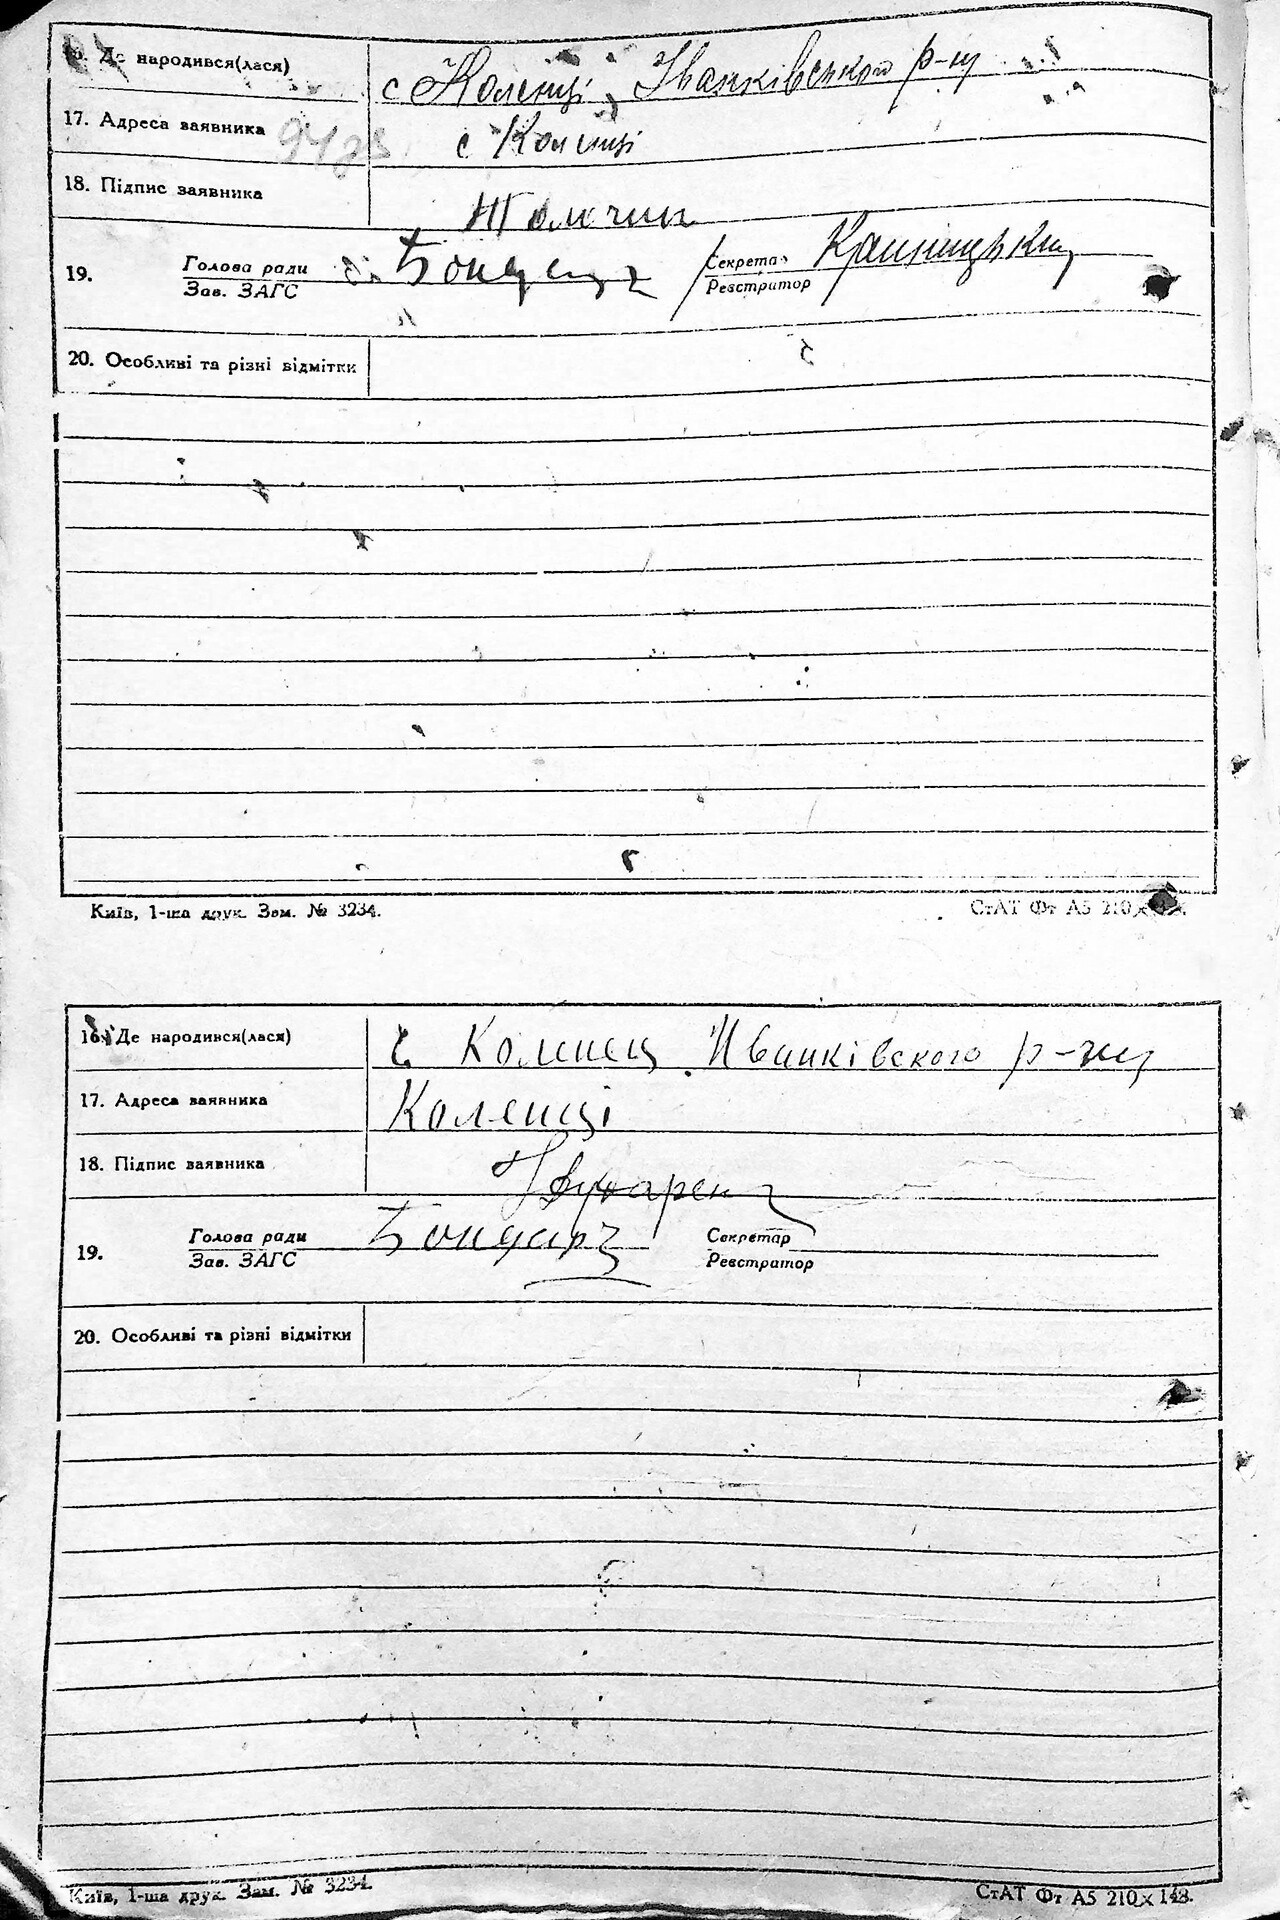 16. Де народився(лася) с Коленці Іванківського р-ну
17. Адреса заявника с Коленці
18. Підпис заявника
19. Голова ради Бондар Секретар
Зав. ЗАГС Реєстратор
20. Особливі та різні відмітки
Київ, 1-ша друк. Зам. № 3234. СтАТ Фт А5 210х148.
16. Де народився(лася) с Коленец Иванківского р-ну
17. Адреса заявника Коленці
18. Підпис заявника
19. Голова ради Бондар Секретар
Зав. ЗАГС Реєстратор
20. Особливі та різні відмітки
Київ, 1-ша друк. Зам. № 3234. СтАТ Фт А5 210х148.